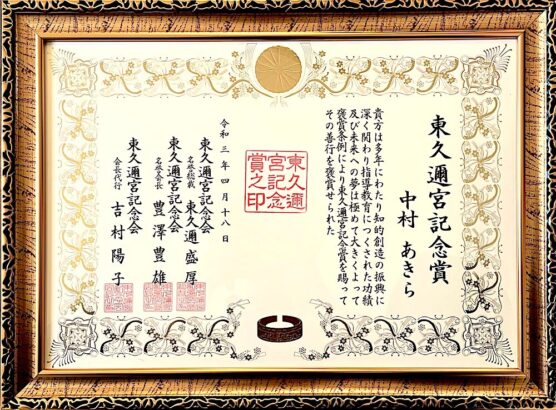 東久邇宮記念賞
中村 あきら
貴方は多年にわたり知的創造の振興に
深く関わり指導教育につくされた功績
及び未来への夢は極めて大きくよって
褒賞条例により東久邇宮記念賞を賜って
その善行を褒賞せられた
東久邇
宮記念
賞之印
令和三年四月十八日
東久邇宮記念会
名誉総裁 東久邇盛厚
東久邇宮記念会
名誉会長 豊澤豊雄
東久邇宮記念会
会長代行 吉村陽子